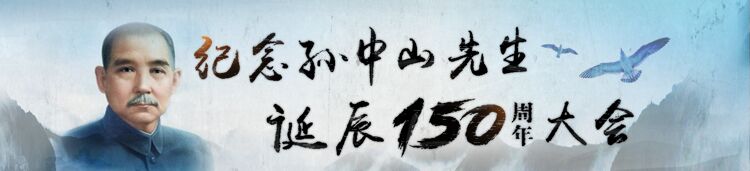 纪念孙中山先生
诞辰150周年大会